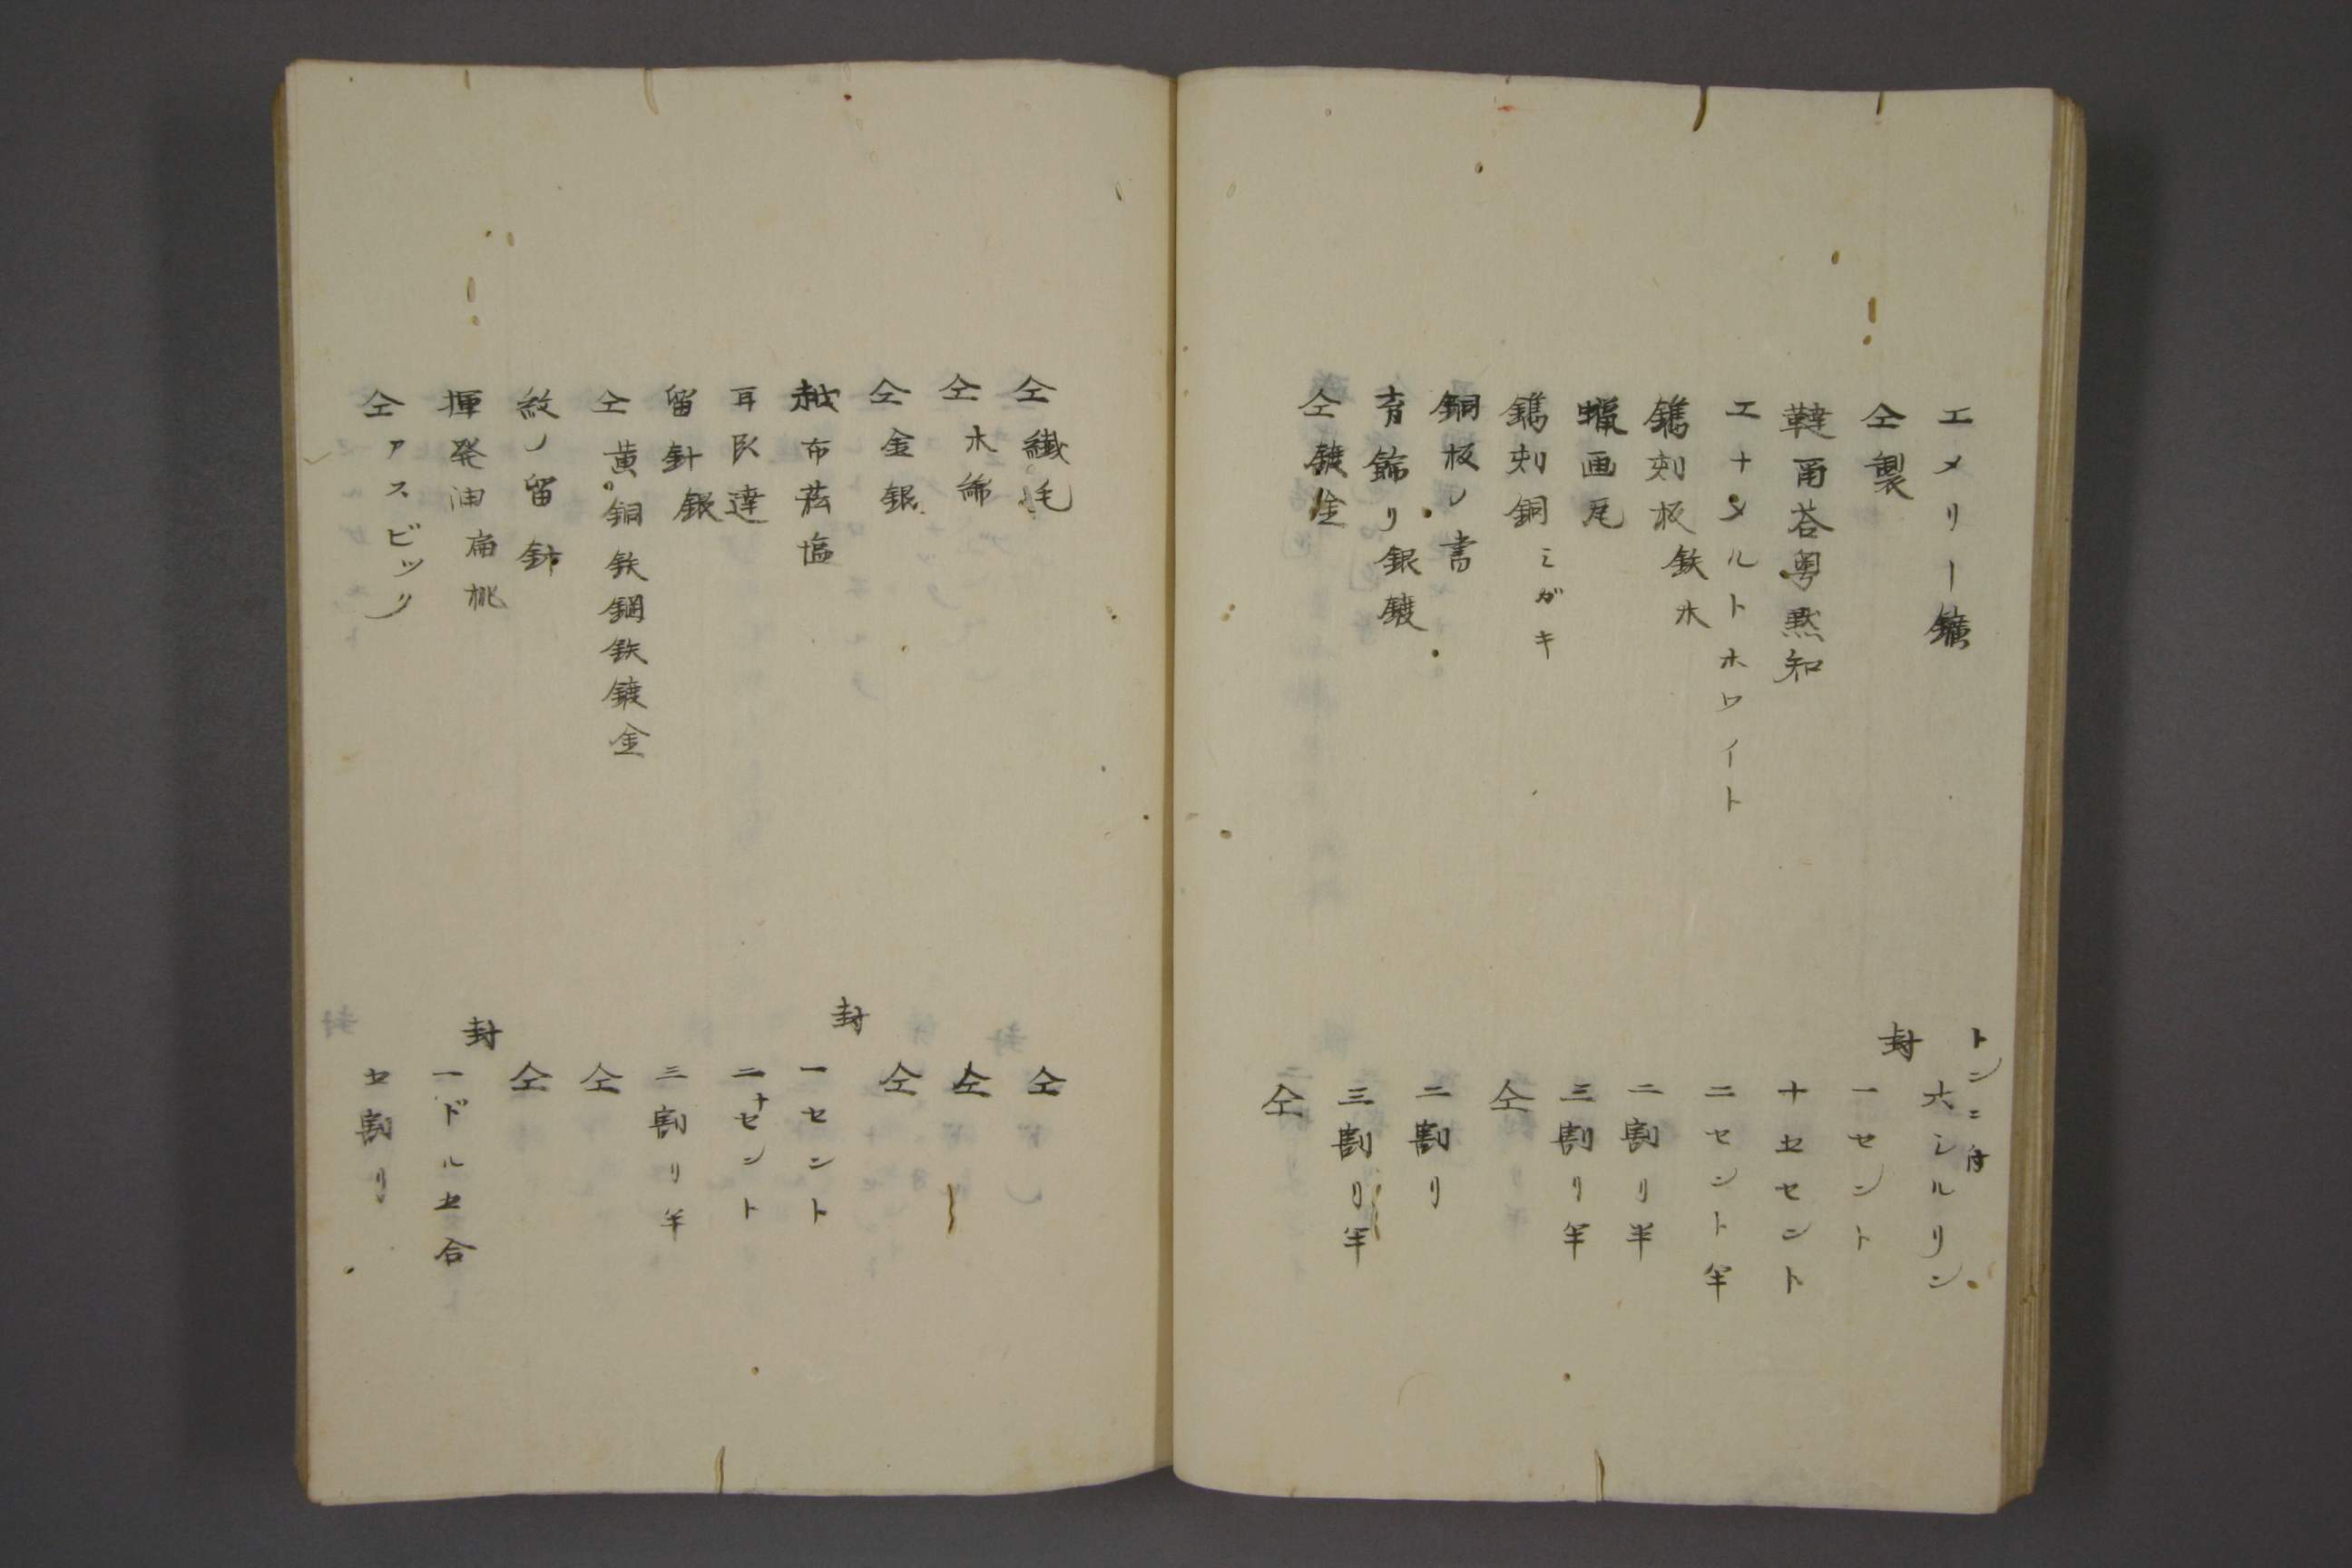 エメリー鑛 トンニ付 六シルリン
仝製 封 一セント
鞾甬荅粤黙知 十五セント
エナメルトホワイト 二セント半
鐫刻板鉄木 二割リ半
蝋画尾 三割リ半
鐫刻銅ミガキ 仝
銅板ノ書 二割リ
肴錺リ銀鍍 三割リ半
仝鍍金 仝
仝繊毛 仝
仝木綿 仝
仝金銀 仝
越布菘塩 封 一セント
耳臥達 二十セント
留針銀 三割リ半
仝黄銅鉄鋼鉄鍍金 仝
紋ノ留針 仝
揮発油扁桃 封 一ドル五合
仝アスビツリ 五割リ